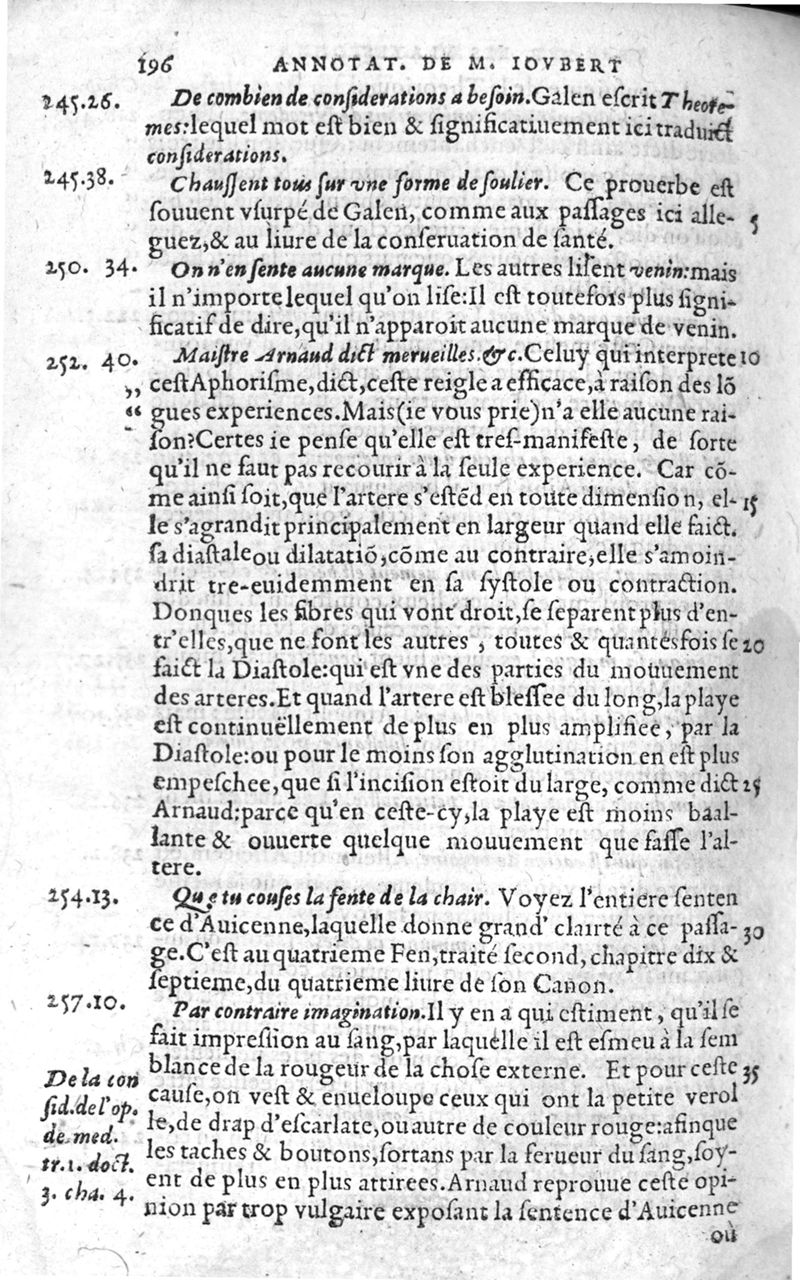 196 ANNOTAT. DE M. IOVBERT
245.26. De combien de considerations a besoin. Galen escrit Theore-
mes: lequel mot est bien & significatiuement ici traduict
considerations.
245.38. Chaussent tous sur vne forme de soulier. Ce prouerbe est
souuent vsurpé de Galen, comme aux passages ici alle- 5
guez, & au liure de la conseruation de santé.
250. 34. On n'en sente aucune marque. Les autres lisent venin: mais
il n'importe lequel qu'on lise: Il est toutefois plus signi-
ficatif de dire, qu'il n'apparoit aucune marque de venin.
252. 40. Maistre Arnaud dict merueilles. &c. Celuy qui interprete 10
,, cest Aphorisme, dict, ceste reigle a efficace, à raison des lõ
“ gues experiences. Mais (ie vous prie) n'a elle aucune rai-
son? Certes ie pense qu'elle est tres-manifeste, de sorte
qu'il ne faut pas recourir à la seule experience. Car cõ-
me ainsi soit, que l'artere s'estẽd en toute dimension, el- 15
le s'agrandit principalement en largeur quand elle faict
sa diastale ou dilatatiõ, cõme au contraire, elle s'amoin-
drit tre-euidemment en sa systole ou contraction.
Donques les fibres qui vont droit, se separent plus d'en-
tr'elles, que ne font les autres, toutes & quantesfois se 20
faict la Diastole: qui est vne des parties du mouuement
des arteres. Et quand l'artere est blessee du long, la playe
est continuëllement de plus en plus amplifiee, par la
Diastole: ou pour le moins son agglutination en est plus
empeschee, que si l'incision estoit du large, comme dict 25
Arnaud: parce qu'en ceste-cy, la playe est moins baal-
lante & ouuerte quelque mouuement que fasse l'al-
tere.
254.13. Que tu couses la fente de la chair. Voyez l'entiere senten
ce d'Auicenne, laquelle donne grand' clairté à ce passa- 30
ge. C'est au quatrieme Fen, traité second, chapitre dix &
septieme, du quatrieme liure de son Canon.
257.10. Par contraire imagination. Il y en a qui estiment, qu'il se
fait impression au sang, par laquelle il est esmeu à la sem
blance de la rougeur de la chose externe. Et pour ceste 35
De la con cause, on vest & enueloupe ceux qui ont la petite verol
sid. de l'op. le, de drap d'escarlate, ou autre de couleur rouge: afinque
de med. les taches & boutons, sortans par la ferueur du sang, soy-
tr.1. doct. ent de plus en plus attirees. Arnaud reprouue ceste opi-
3. cha. 4. nion par trop vulgaire exposant la sentence d'Auicenne
où